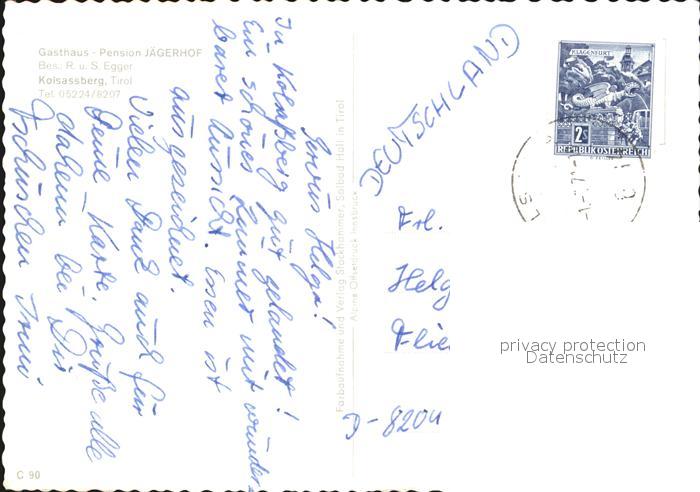 Gasthaus - Pension JÄGERHOF
Bes.: R. u. S. Egger
Kolsassberg, Tirol
Tel. 05224/8207
Servus Helga!
In Kolsaßberg gut gelandet!
Ein schönes Zimmer mit wunder-
barer Aussicht. Essen ist
ausgezeichnet.
Vielen Dank auch für
Deine Karte. Grüße alle
daheim bei Dir
Tschüschen
Farbaufnahme und Verlag Stockhammer, Solbad Hall in Tirol
Alpine Offsetdruck Innsbruck
DEUTSCHLAND
KLAGENFURT
2S
REPUBLIK ÖSTERREICH
Frl.
Helg
Flie
D-8204
privacy protection
Datenschutz
C 90